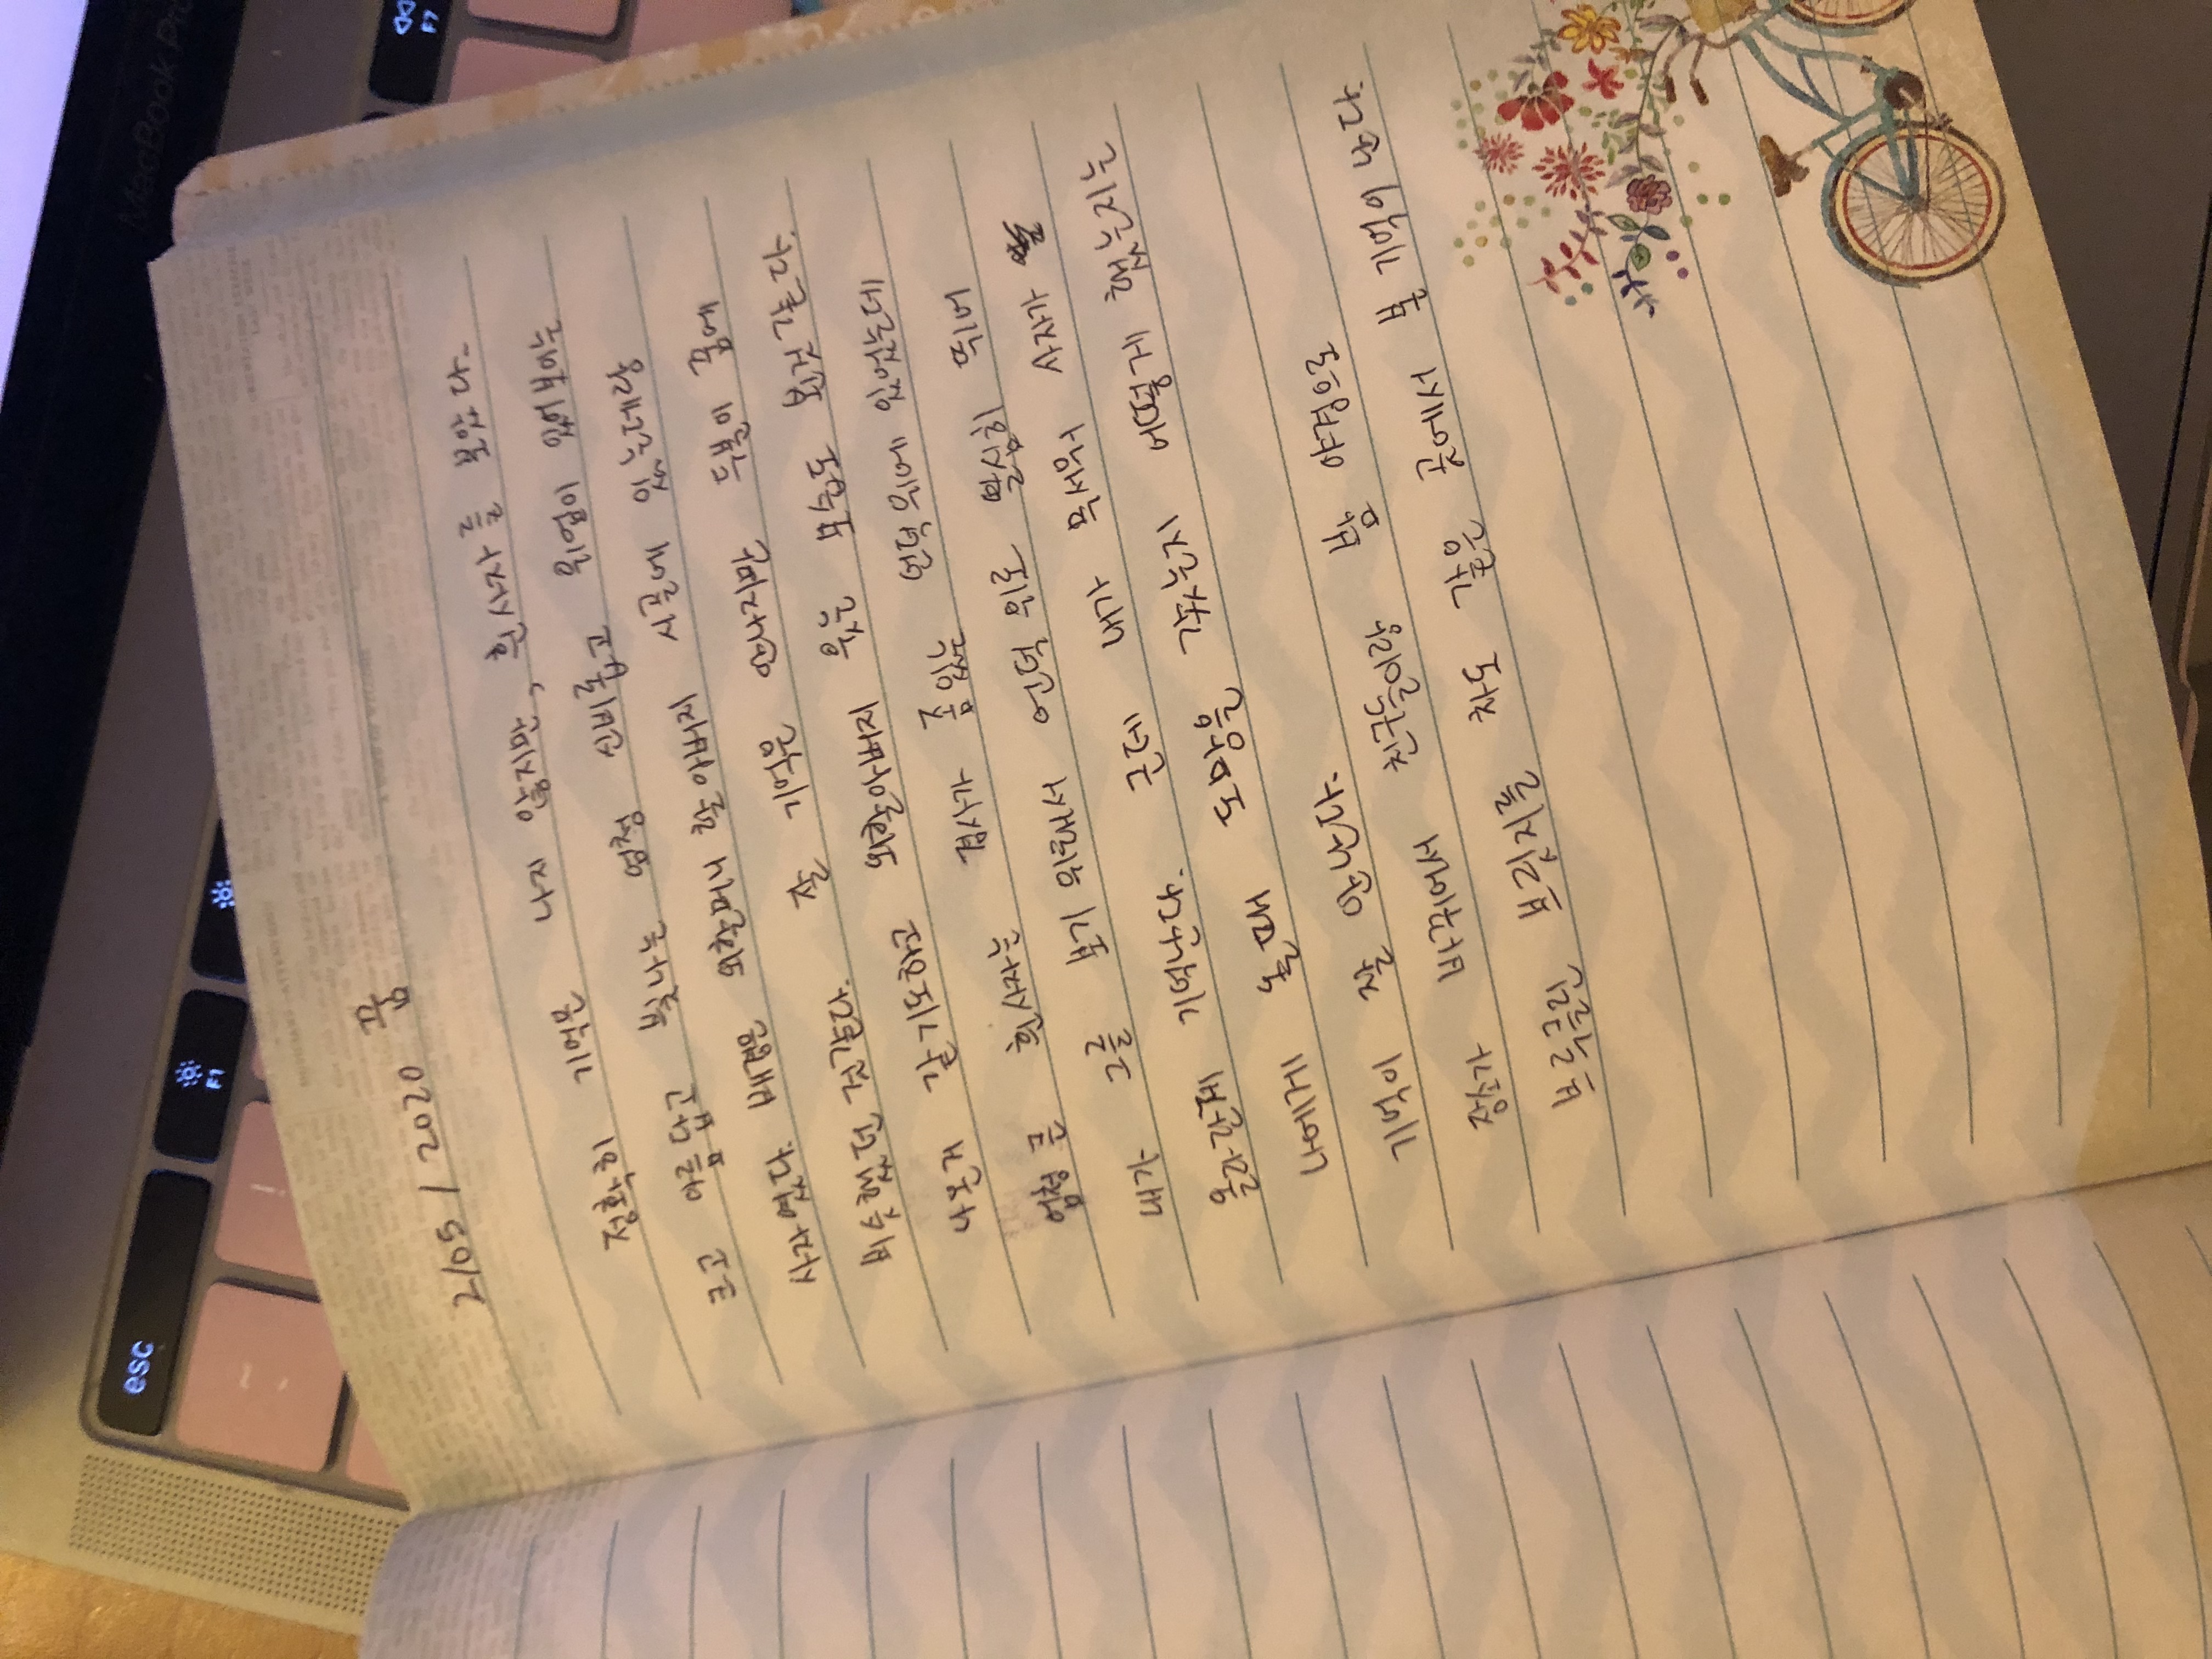 esc
F1
MacBook Pro
F7
2/05/2020 꿈
정확히 기억은 나지 않지만, 흰사자를 보았다.
크고 아름답고 빛나는 엄청 신비롭고 위엄이 있어보이는
사자였다. 배경은 외할머니 할아버지 시골에 있는데랑
비슷했던 것같다. 잘 기억은 안나지만 두분이 꿈에
나온거 같기도하고 외할아버지 웃는 모습도 본것같다.
엄청 큰 흰사자는 경사가 좀있는 언덕위에 있었는데
내가 그를 보기위해서 언덕위로 열심히 뛰어
올라간게 기억난다. 근데 내가 무서워 사자가
나에게 올때 도망을 갔는지 어떻게 했는지는
기억이 잘 안난다.
장소가 바뀌어서 친구들이랑 밤 야경으로
브루클린 브릿지를 차도 같은 곳에서 본 기억이 난다.